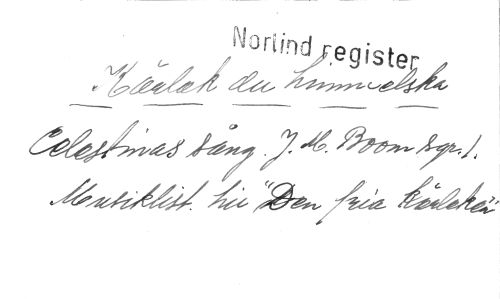 Norlind register
Kärlek du himmelska
Celestinas sång. J. M. Boom
Musiklist. till "Den fria kärleken"